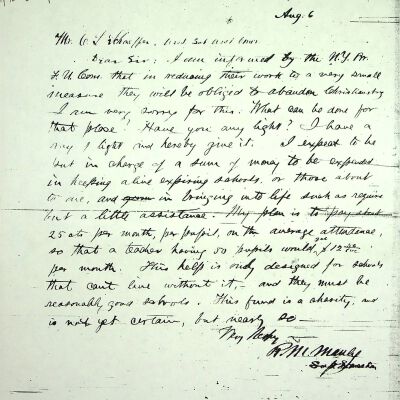 Aug. 6
Mr. C. S. Schaeffer, Asst Sub Asst Com.
Dear Sir: I am informed by the N.Y. Br.
F. U. Com. that in reducing their work to a very small
measure they will be obliged to abandon Christiansburg
I am very sorry for this. What can be done for
that place? Have you any light? I have a
ray of light and hereby give it. I expect to be
put in charge of a sum of money to be expended
in keeping alive expiring schools, or those about
to die, and in bringing into life such as require
but a little assistance. My plan is to pay about
25 cts per month, per pupil, on the average attendance,
so that a teacher having 50 pupils would $12.50
per month. This help is only designed for schools
that can't live without it, — and they must be
reasonably good schools. This fund is a charity, and
is not yet certain, but nearly so —
Very Resply
R. M. Manly
Supt Education